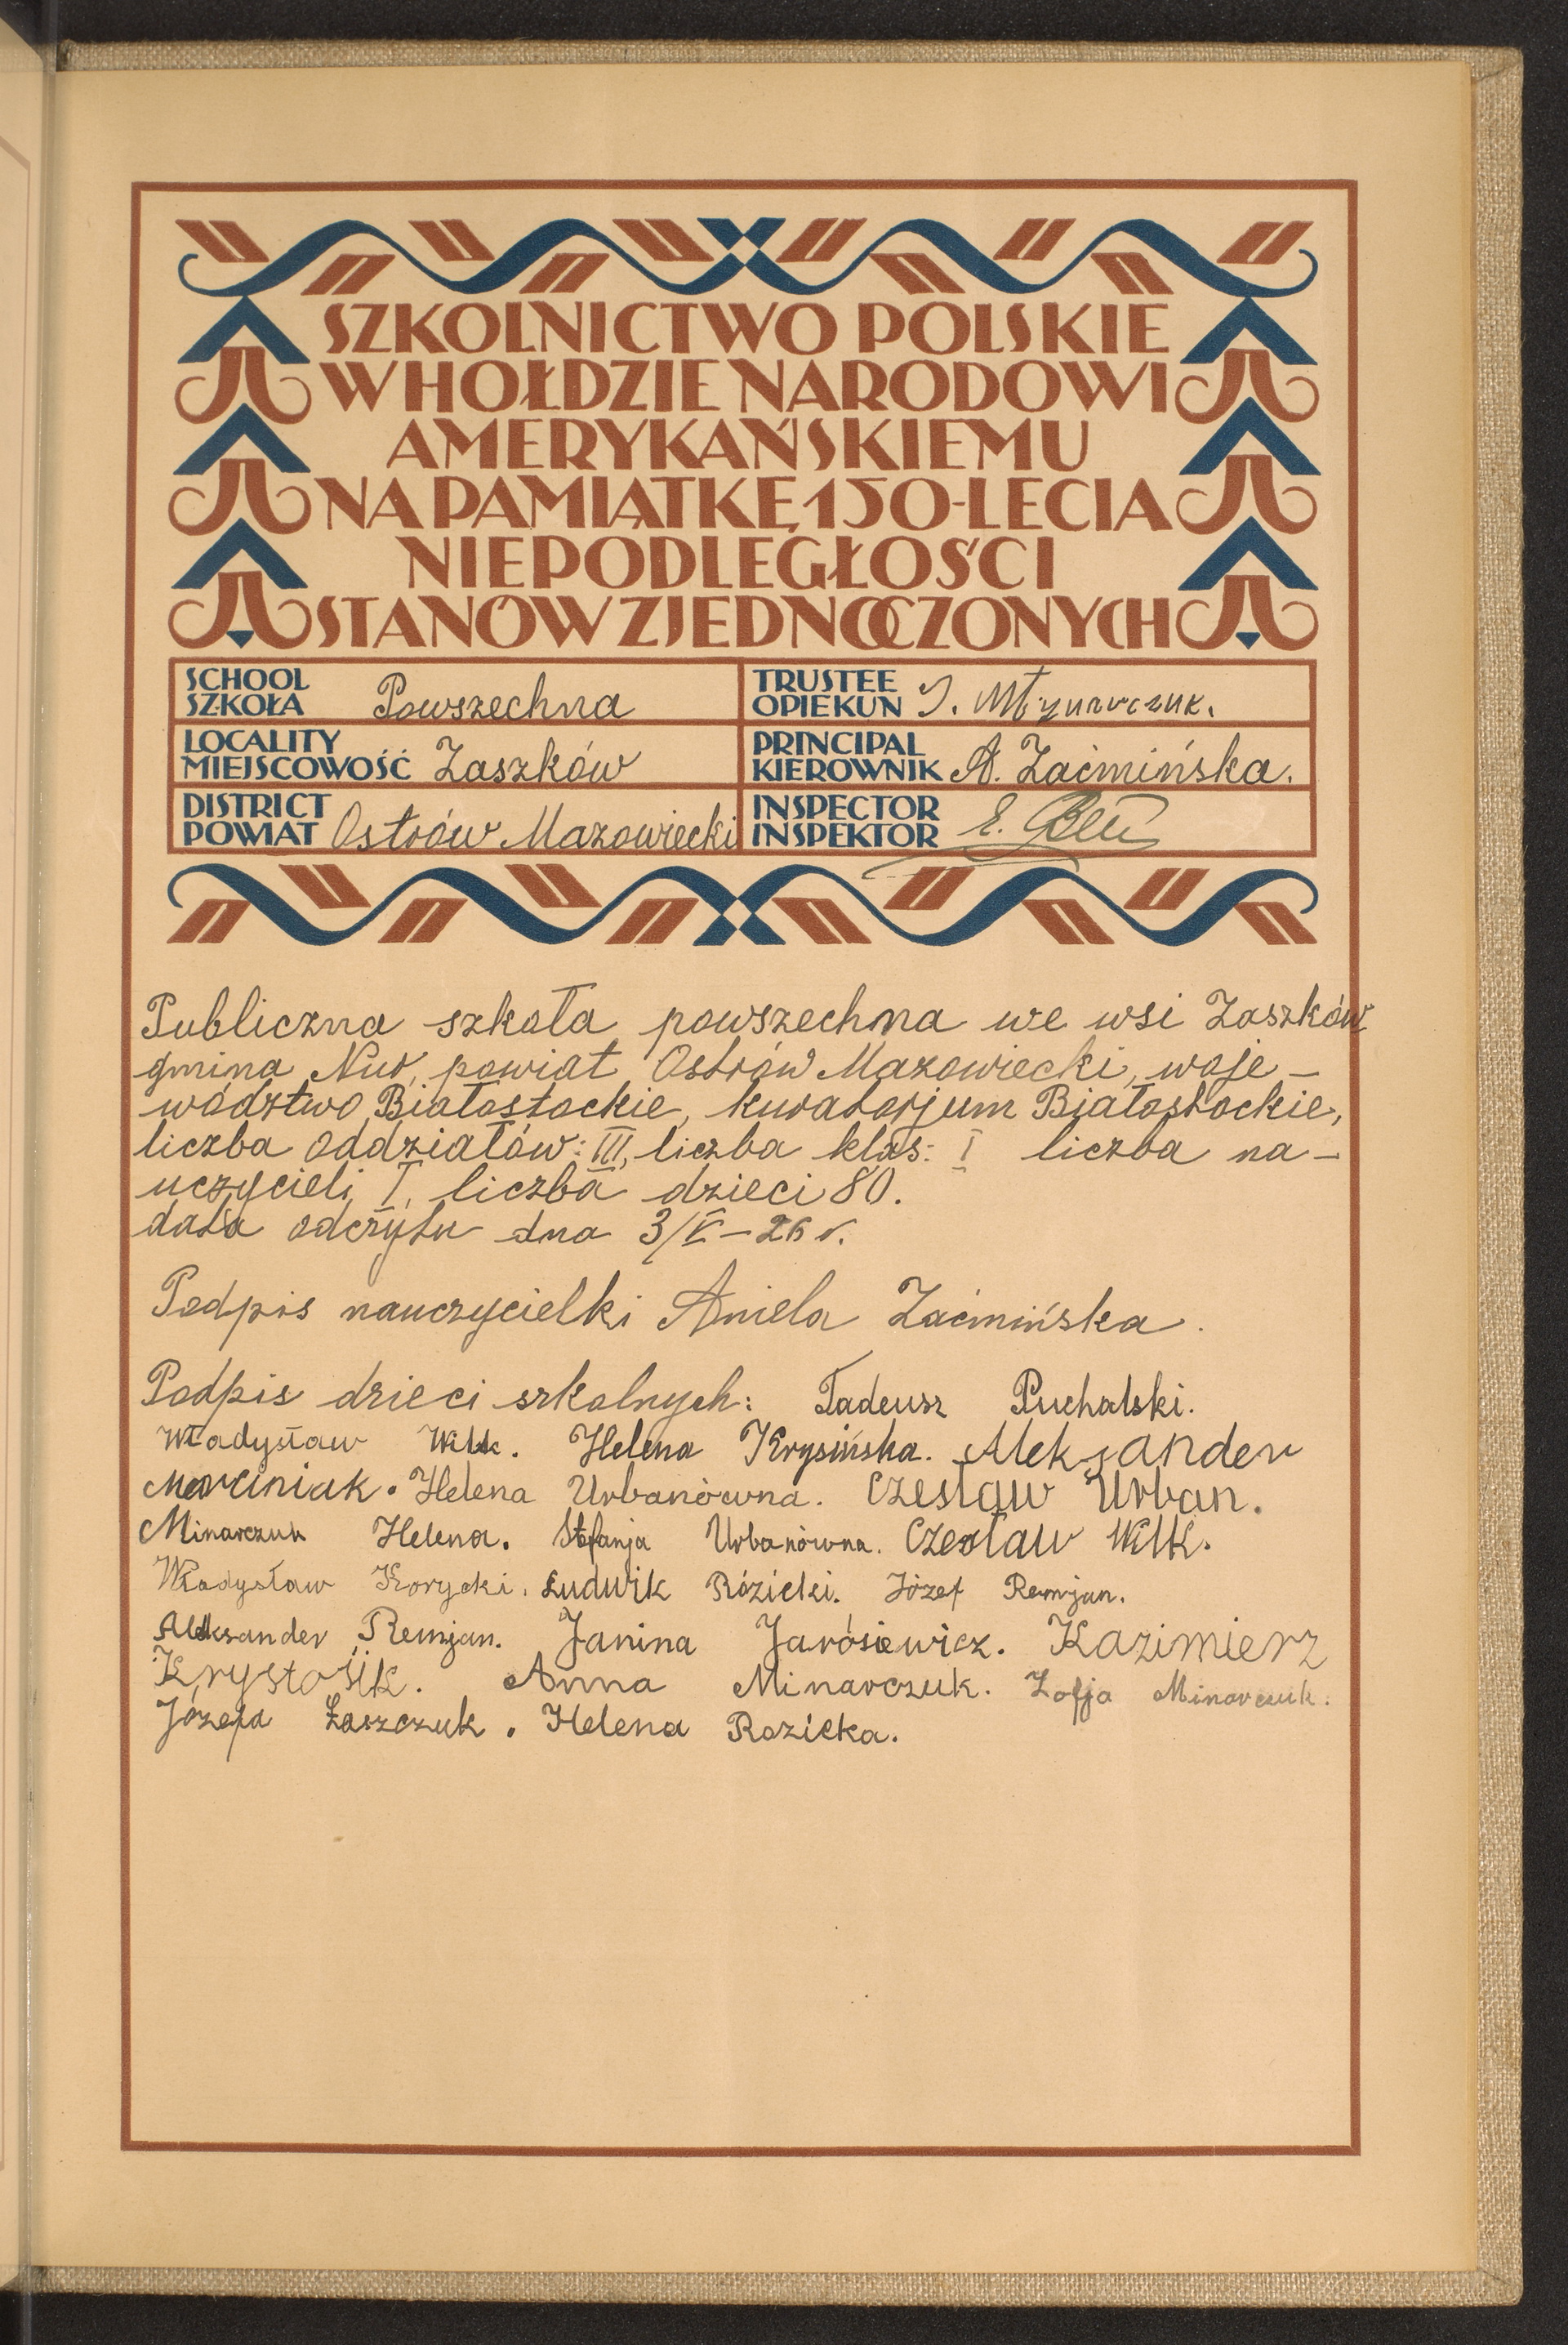 SZKOLNICTWO POLSKIE
W HOŁDZIE NARODOWI
AMERYKAŃSKIEMU
NA PAMIĄTKĘ 150-LECIA
NIEPODLEGŁOŚCI
STANÓW ZJEDNOCZONYCH
SCHOOL
SZKOŁA Powszechna
TRUSTEE
OPIEKUN J. Młynarczuk.
LOCALITY
MIEJSCOWOŚĆ Zaszków
PRINCIPAL
KIEROWNIK A. Zaćmińska.
DISTRICT
POWIAT Ostrów Mazowiecki
INSPECTOR
INSPEKTOR E.
Publiczna szkoła powszechna we wsi Zaszków
gmina Nur, powiat Ostrów Mazowiecki, woje-
wództwo Białostockie, kuratorjum Białostockie,
liczba oddziałów: III, liczba klas: I liczba na-
uczycieli I, liczba dzieci 80.
data odczytu dna 3/V-26 r.
Podpis nauczycielki Aniela Zaćmińska.
Podpis dzieci szkolnych: Tadeusz Puchalski.
Władysław Wilk. Helena Krysińska. Aleksander
Marciniak. Helena Urbanówna. Czesław Urban.
Minarczuk Helena. Stefanja Urbanówna. Czesław Wilk.
Władysław Korycki. Ludwik Rózicki. Józef Remjan.
Aleksander Remjan. Janina Jarósiewicz. Kazimierz
Krystosik. Anna Minarczuk. Zofja Minarczuk.
Józefa Łaszczuk. Helena Rozicka.